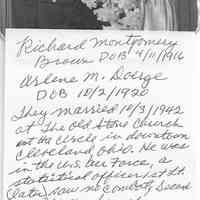 Richard Montgomery
Brown DOB 4/11/1916
Arlene M. Doerge
DOB 10/2/1920
They married 10/3/1942
at the Old Stone Church
on the Circle in downtown
Cleveland, Ohio. He was
in the U.S. Air Force, a
statistical officer 1st Lt.
(later saw no combat)